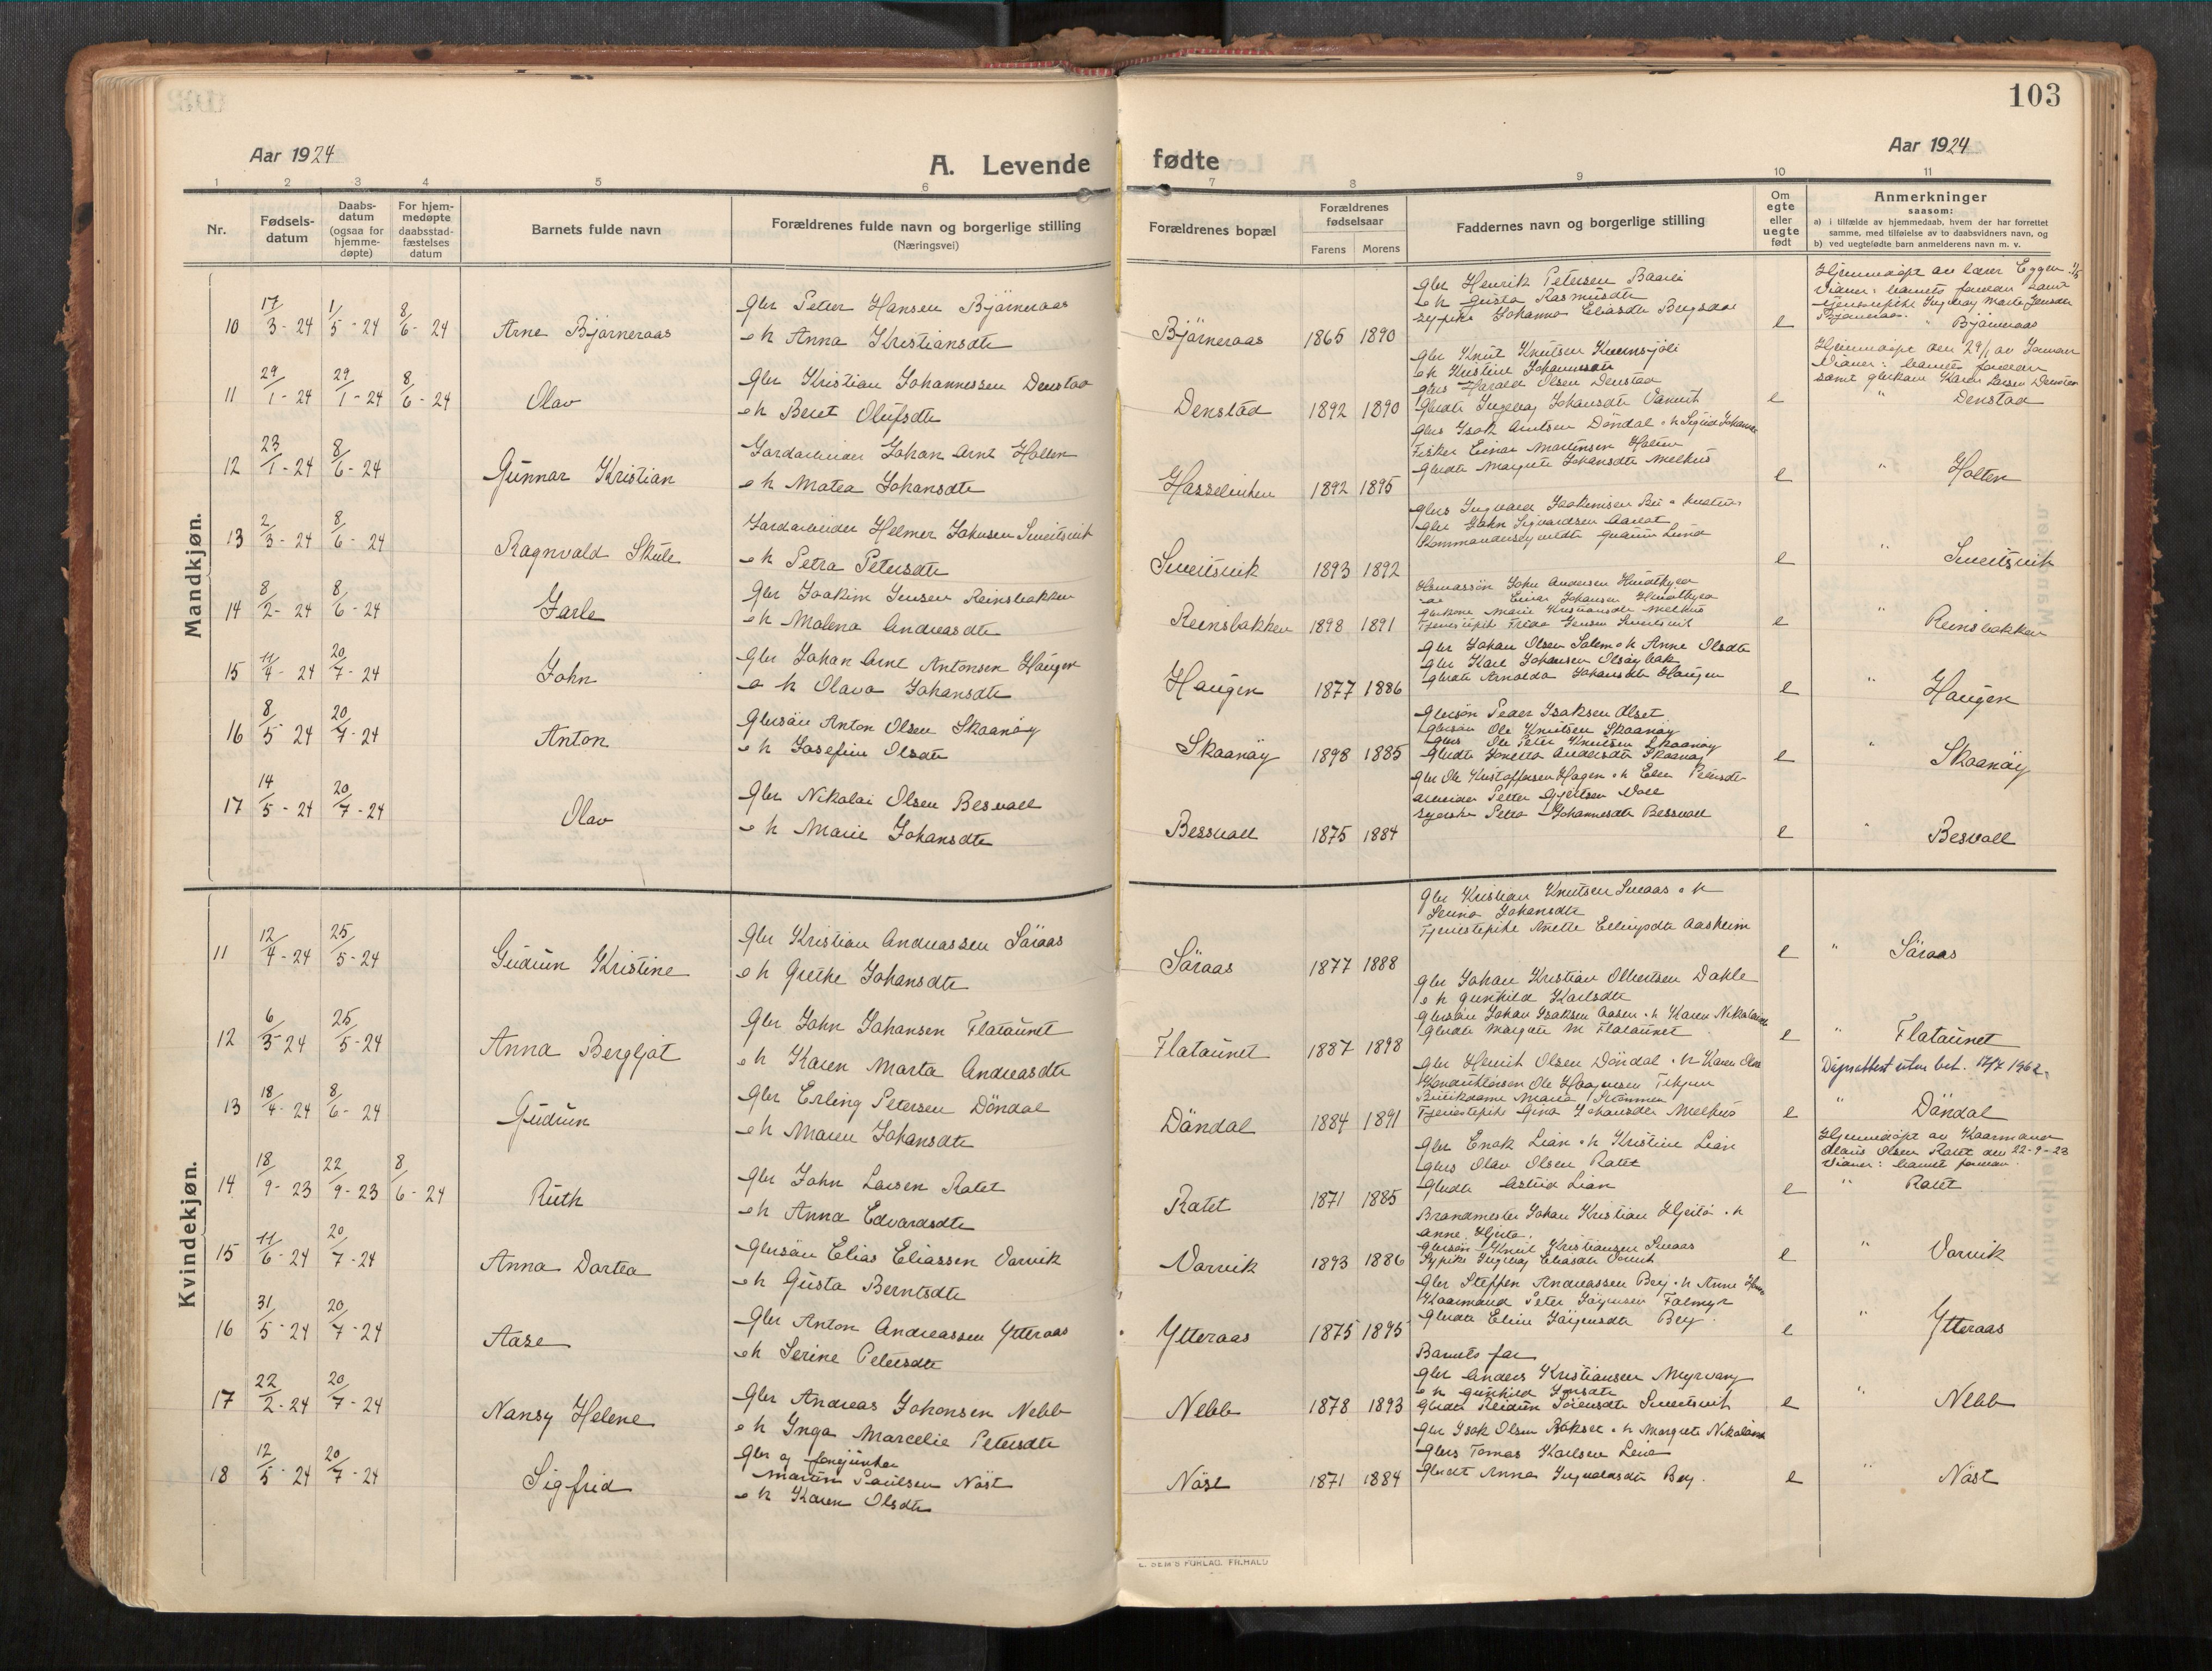 103
Aar 1924
A. Levende fødte
Aar 1924
1 2 3 4 5 6 7 8 9 10 11
Nr.
Fødsels-
datum
Daabs-
datum
(ogsaa for
hjemme-
døpte)
For hjem-
medøpte
daabsstad-
fæstelses
datum
Barnets fulde navn
Forældrenes fulde navn og borgerlige stilling
(Næringsvei)
Forældrenes bopæl
Forældrenes
fødselsaar
Farens Morens
Faddernes navn og borgerlige stilling
Om
egte
eller
uegte
født
Anmerkninger
saasom:
a) i tilfælde av hjemmedaab, hvem der har forrettet
samme, med tilføielse av to daabsvidners navn, og
b) ved uegtefødte barn anmelderens navn m. v.
Mandkjøn.
10 17/3-24 1/5-24 8/6-24 Arne Bjørneraas
Gbr Peter Hansen Bjørneraas
o h Anna Kristiansdtr
Bjørneraas 1865 1890
Gbr Henrik Petersen Baarli
o h Gusta Rasmusdtr
Sypike Johanna Eliasdtr
e
Hjemmedøpt av lærer Eggen 1/5
Vidner: barnets foreldre samt
tjenestepike Ingebay Marie Jensdtr
Bjørneraas. " Bjørneraas
11 29/1-24 29/1-24 8/6-24 Olav
Gbr Kristian Johannessen Denstad
o h Beret Olufsdtr
Denstad 1892 1890
Gbr Knut Knutsen Kvernsjøli
o h Kristine Johannesdtr
Gbrs Harald Olsen Denstad
Gbrdtr Ingebay Johansdtr Varvik
e
Hjemmedøpt den 29/1 av
Vidner: barnets foreldre
samt gbrkone Karen Larsen Denstad
" Denstad
12 23/1-24 8/6-24 Gunnar Kristian
Gardarbeider Johan Arnt Holten
o h Matea Johansdtr
Hasselviken 1892 1895
Gbrs Isak Arntsen Døndal o h Sigrid Johansdtr
Fisker Einar Martinsen Holten
Gbrdtr Margrete Johansdtr Melhus
e " Holten
13 2/3-24 8/6-24 Ragnvald Skule
Gardarbeider Helmer Johnsen Sveitsvik
o h Petra Petersdtr
Sveitsvik 1893 1892
Gbrs Ingvald Joakimsen
Gbr John Sigvardsen
Gudrun Lund
e " Sveitsvik
14 8/2-24 8/6-24 Jarle
Gbr Joakim Jensen Reinsbakken
o h Malena Andreasdtr
Reinsbakken 1898 1891
John Andersen
Einar Johansen
Gbrkone Marie Kristiansdtr Melhus
Tjenestepike Frida Jensen Sveitsvik
e " Reinsbakken
15 11/4-24 20/7-24 John
Gbr Johan Arnt Antonsen Haugen
o h Olava Johansdtr
Haugen 1877 1886
Gbr Johan Olsen Salem o h Anne Olsdtr
Gbr Karl Johansen Olsøybak
Gbrdtr Arnolda Johansdtr Haugen
e " Haugen
16 8/5-24 20/7-24 Anton
Gbrsøn Anton Olsen Skaanøy
o h Josefine Olsdtr
Skaanøy 1898 1885
Gbrsøn Peder Isaksen Olset
Gbrsøn Ole Knutsen Skaanøy
Gbrs Ole Peter Knutsen Skaanøy
Gbrdtr Jonetta Andersdtr Skaanøy
e " Skaanøy
17 14/5-24 20/7-24 Olav
Gbr Nikolai Olsen Besvall
o h Marie Johansdtr
Bessvall 1875 1884
Gbr Ole Kristoffersen Hagen o h Elen Petersdtr
Arbeider Petter Gjertsen Voll
Syerske Petra Johannesdtr Bessvall
e " Besvall
Kvindekjøn.
11 12/4-24 25/5-24 Gudrun Kristine
Gbr Kristian Andreassen Søraas
o h Grethe Johansdtr
Søraas 1877 1888
Gbr Kristian Knutsen Sneaas o h
Serina Johansdtr
Tjenestepike Anette Ellingsdtr Aasheim
e " Søraas
12 6/3-24 25/5-24 Anna Bergljot
Gbr John Johansen Flataunet
o h Karen Marta Andreasdtr
Flataunet 1887 1898
Gbr Johan Kristian Olbertsen Dahle
o h Gunhild Karlsdtr
Gbrsøn Johan Isaksen Aasen o h Karen Nikolaisdtr
Gbrdtr Margrete M Flataunet
e " Flataunet
13 18/4-24 8/6-24 Gudrun
Gbr Erling Petersen Døndal
o h Maren Johansdtr
Døndal 1884 1891
Gbr Henrik Olsen Døndal o h Karen Olsdtr
Butikdame Maria Strømmen
Tjenestepike Gina Johansdtr Melhus
e
Døpsattest uten bet. 17/7 1962.
" Døndal
14 18/9-23 22/9-23 8/6-24 Ruth
Gbr John Larsen Ratet
o h Anna Edvardsdtr
Ratet 1871 1885
Gbr Enok Lian o h Kristine Lian
Gbrs Olav Olsen Ratet
Gbrdtr Astrid Lian
e
Hjemmedøpt av Kaarmand
Olaus Olsen Ratet den 22-9-23
Vidner: barnets foreldre.
" Ratet
15 11/6-24 20/7-24 Anna Dortea
Gbrsøn Elias Eliassen Varvik
o h Gusta Berntsdtr
Varvik 1893 1886
Brandmester Johan Kristian Hjeilø o h
Anne Hjeilø.
Gbrsøn Knut Kristiansen Sneaas
Sypike Ingebay Eliasdtr Varvik
e " Varvik
16 31/5-24 20/7-24 Aase
Gbr Anton Andreassen Ytteraas
o h Serine Petersdtr
Ytteraas 1875 1895
Gbr Steffen Andreassen Bey o h Anne
Kaarmand Peter Jørgensen Falmyr
Gbrdtr Eline Jørgensdtr Bey.
e " Ytteraas
17 22/2-24 20/7-24 Nansy Helene
Gbr Andreas Johansen Nebb
o h Inga Marcelie Petersdtr
Nebb 1878 1893
Barnets far
Gbr Anders Kristiansen Myrvang
o h Gunhild Jonsdtr
Gbrdtr Reidun Sørensdtr Sveitsvik
e " Nebb
18 12/5-24 20/7-24 Sigfrid
Gbr og
Martin Paulsen Nøst
o h Karen Olsdtr
Nøst 1871 1884
Gbr Isak Olsen Rokset o h Margrete Nikolaisdtr
Gbrs Tomas Karlsen Lein
Gbrdt Anna Ingvaldsdtr Bey.
e " Nøst
E. SEM'S FORLAG. FR.HALD